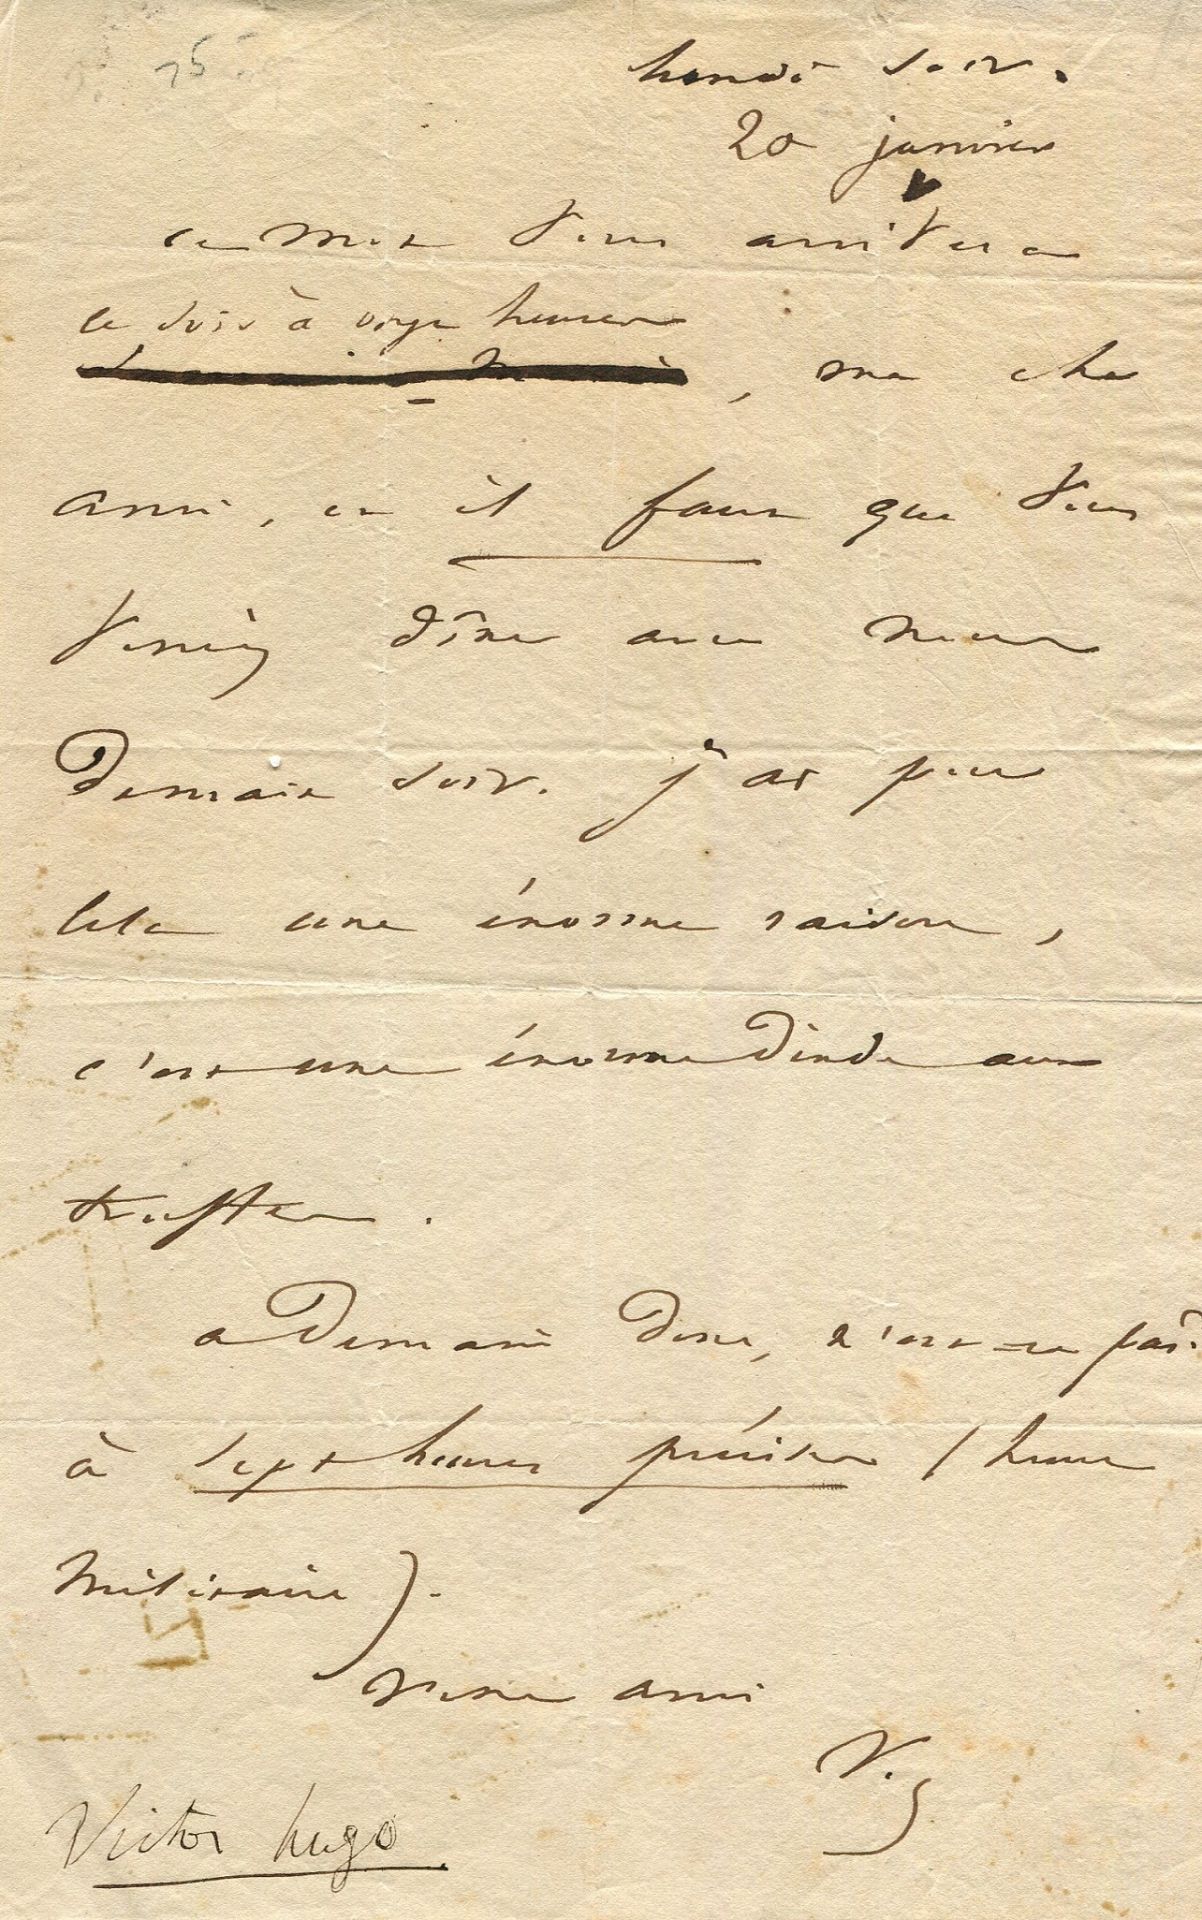 75
lundi soir.
20 janvier
ce mot vous arrivera
ce soir à onze heures
demain mardi, mon cher
ami, et il faut que vous
veniez dîner avec nous
demain soir. j'ai pour
cela une énorme raison,
c'est une énorme dinde aux
truffes.
a demain donc, n'est-ce pas.
à sept heures précises (heure
militaire).
votre ami
V.
Victor hugo